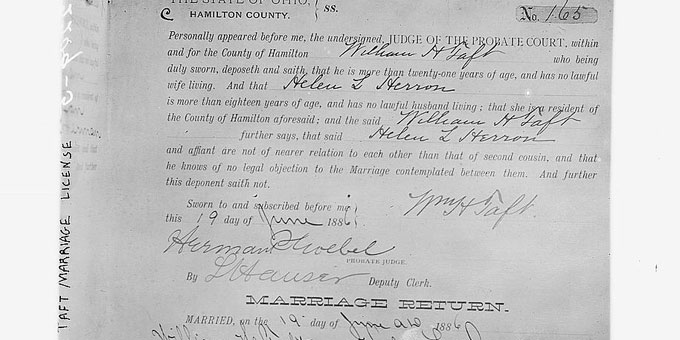 THE STATE OF OHIO,
HAMILTON COUNTY. ss.
No. 165
Personally appeared before me, the undersigned, JUDGE OF THE PROBATE COURT, within
and for the County of Hamilton William H Taft who being
duly sworn, deposeth and saith, that he is more than twenty-one years of age, and has no lawful
wife living. And that Helen L Herron
is more than eighteen years of age, and has no lawful husband living; that she is a resident of
the County of Hamilton aforesaid; and the said William H Taft
further says, that said Helen L Herron
and affiant are not of nearer relation to each other than that of second cousin, and that
he knows of no legal objection to the Marriage contemplated between them. And further
this deponent saith not.
Sworn to and subscribed before me
this 19 day of June 1886
Wm H Taft.
Herman Goebel
PROBATE JUDGE.
By L Hauser Deputy Clerk.
MARRIAGE RETURN.
MARRIED, on the 19 day of June 1886
TAFT MARRIAGE LICENSE